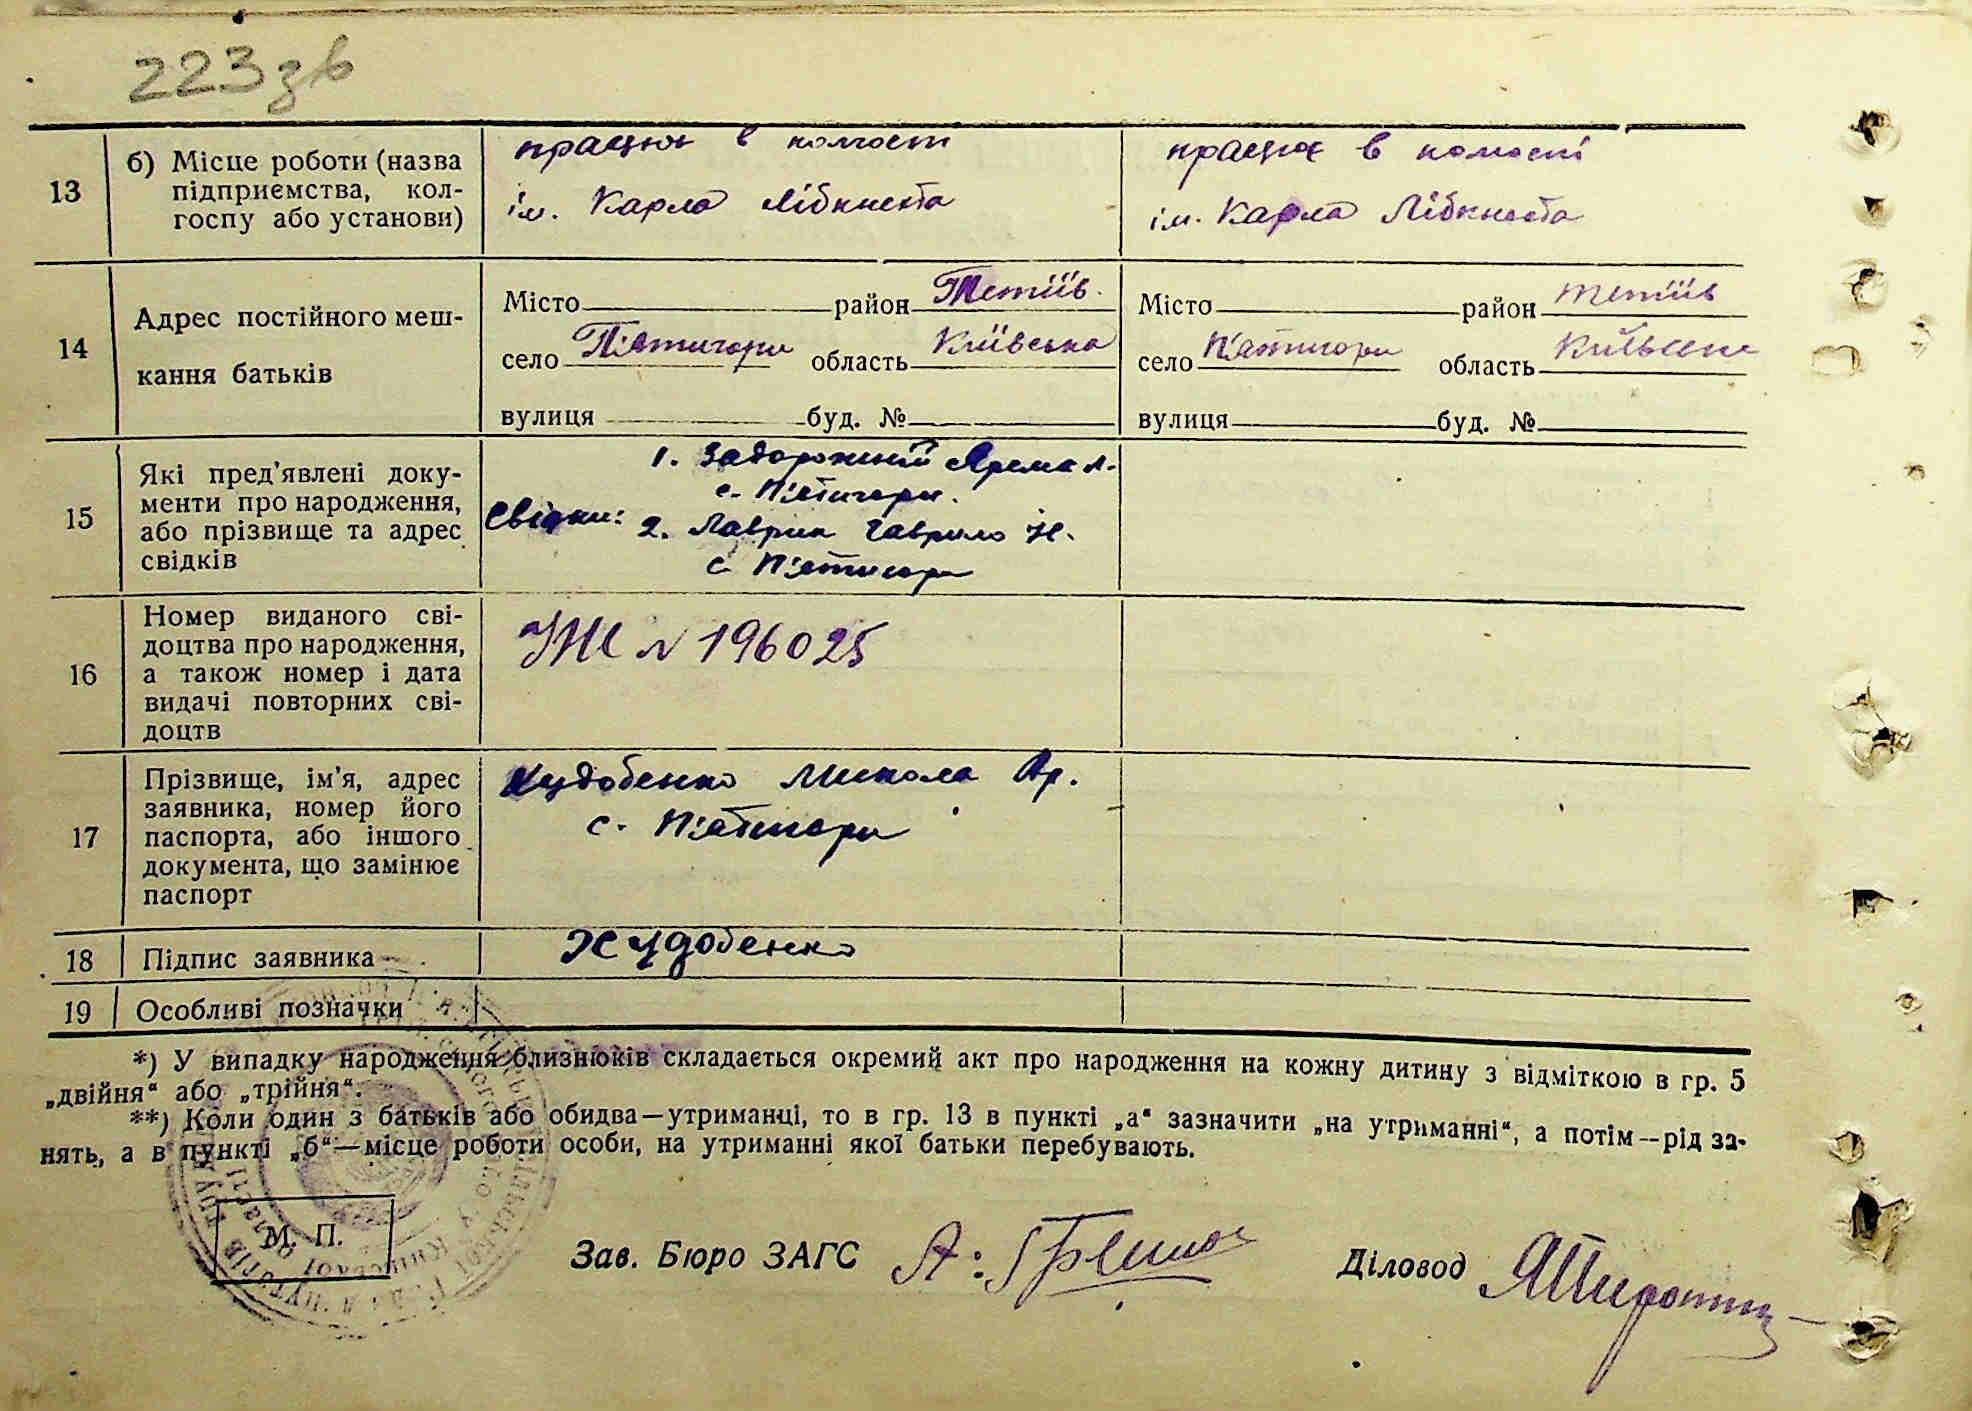 223зв
13
б) Місце роботи (назва
підприємства, кол-
госпу або установи)
працює в колгоспі
ім. Карла Лібкнехта
працює в колгоспі
ім. Карла Лібкнехта
14
Адрес постійного меш-
кання батьків
Місто район Тетіїв
село П'ятигори область Київська
вулиця буд. №
Місто район Тетіїв
село П'ятигори область Київська
вулиця буд. №
15
Які пред'явлені доку-
менти про народження,
або прізвище та адрес
свідків
Свідки: 1. Задорожний Ярема Л.
с. П'ятигори.
2. Лаврик Гаврило Н.
с. П'ятигори
16
Номер виданого сві-
доцтва про народження,
а також номер і дата
видачі повторних сві-
доцтв
УЖ № 196025
17
Прізвище, ім'я, адрес
заявника, номер його
паспорта, або іншого
документа, що замінює
паспорт
Худобенко Микола Ар.
с. П'ятигори
18
Підпис заявника
Худобенко
19
Особливі позначки
*) У випадку народження близнюків складається окремий акт про народження на кожну дитину з відміткою в гр. 5
„двійня“ або „трійня“.
**) Коли один з батьків або обидва—утриманці, то в гр. 13 в пункті „а“ зазначити „на утриманні“, а потім—рід за-
нять, а в пункті „б“—місце роботи особи, на утриманні якої батьки перебувають.
М. П.
Зав. Бюро ЗАГС
Діловод